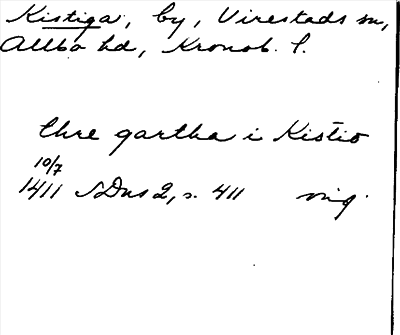 Kistiga, by, Virestads sn,
Allbo hd, Kronob. l.
thre gartha i Kistio
10/7
1411 SDns 2, s. 411 orig.